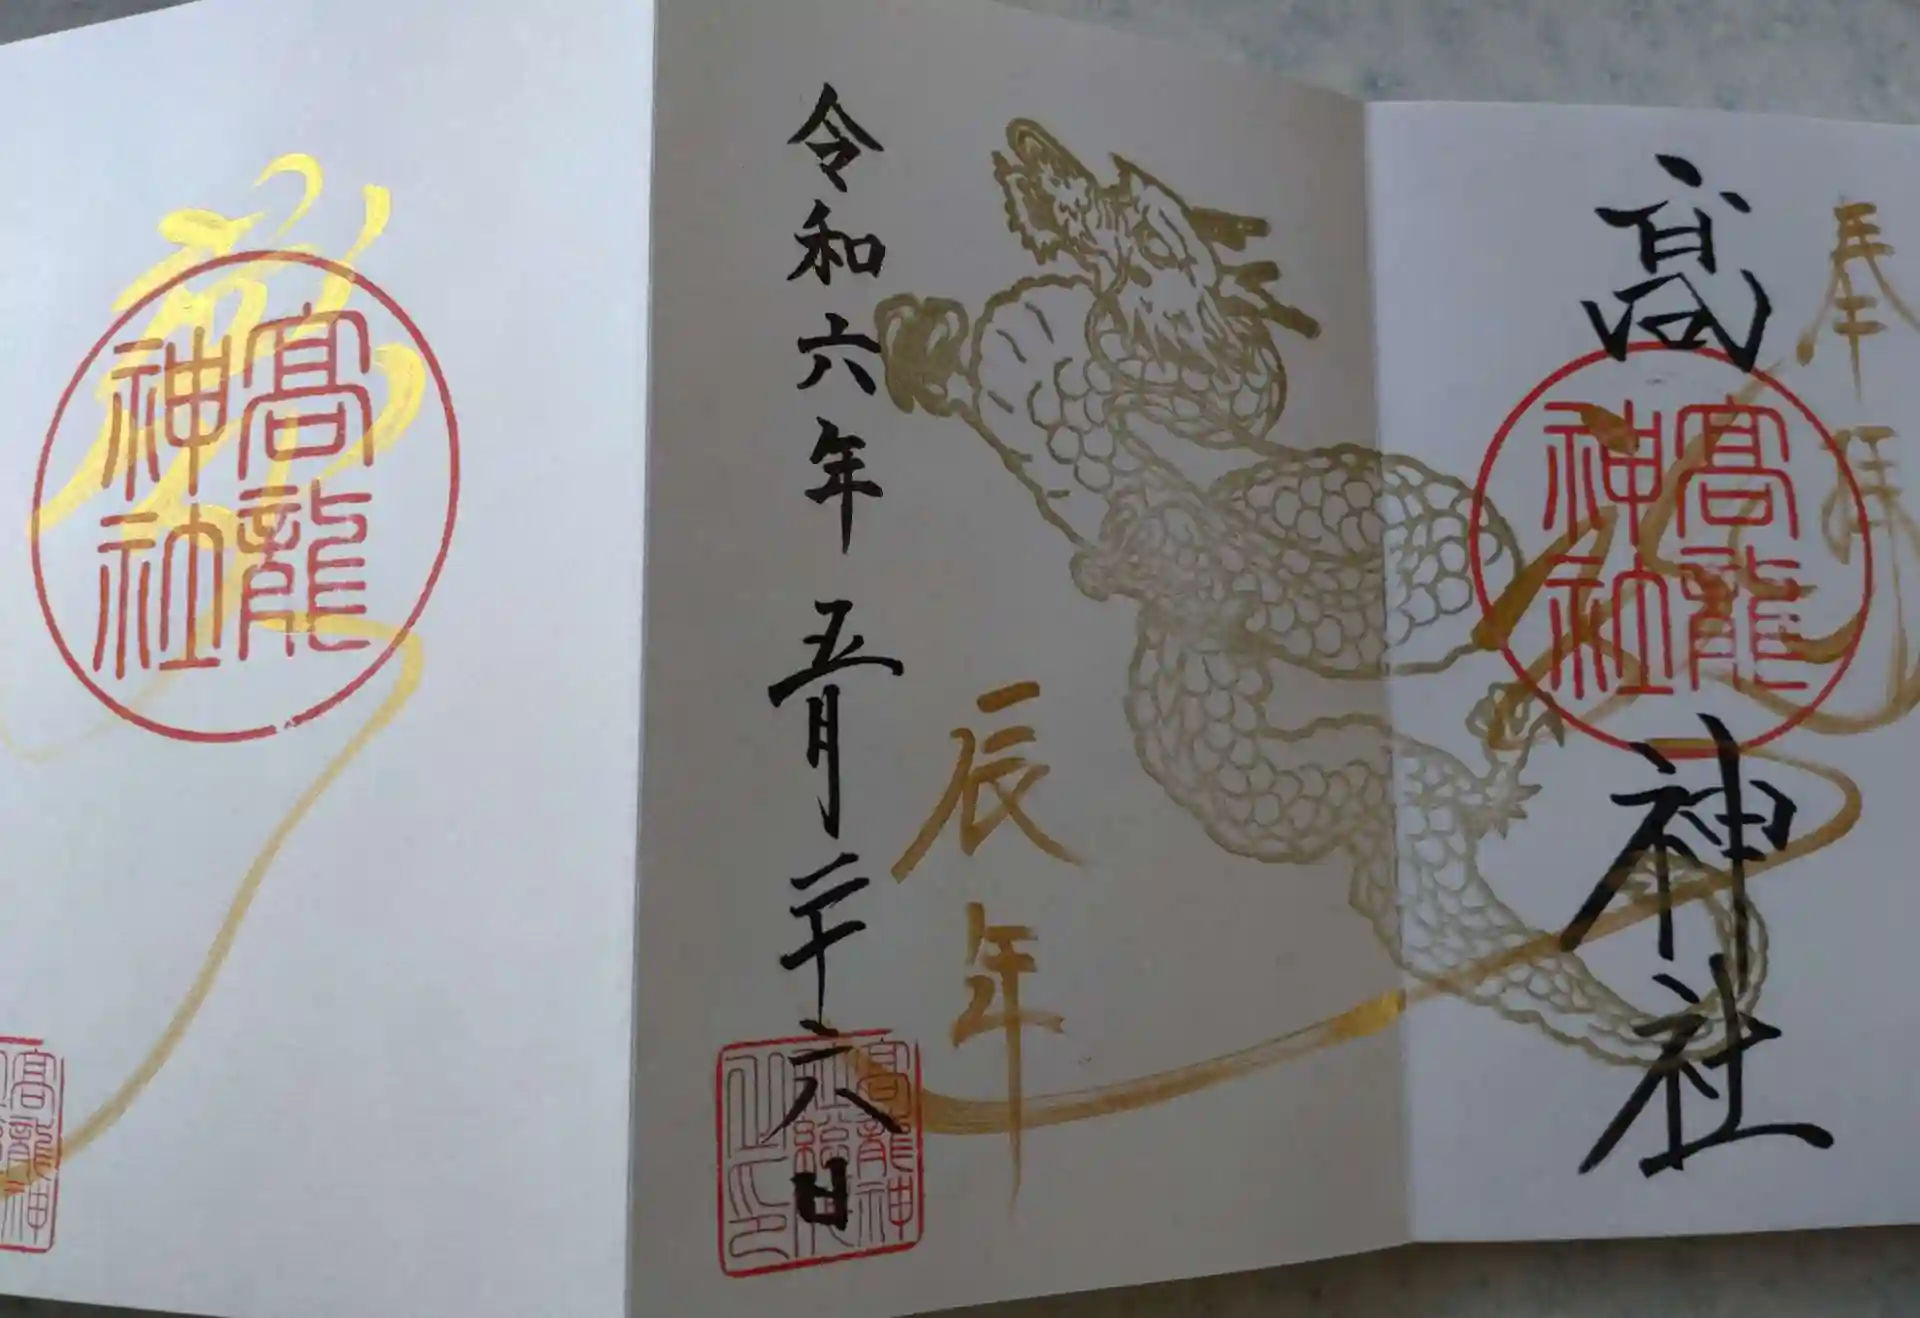 奉拝
高
神社
髙龍
神社
辰年
令和六年五月二十六日
髙龍神
髙龍
神社
髙龍神